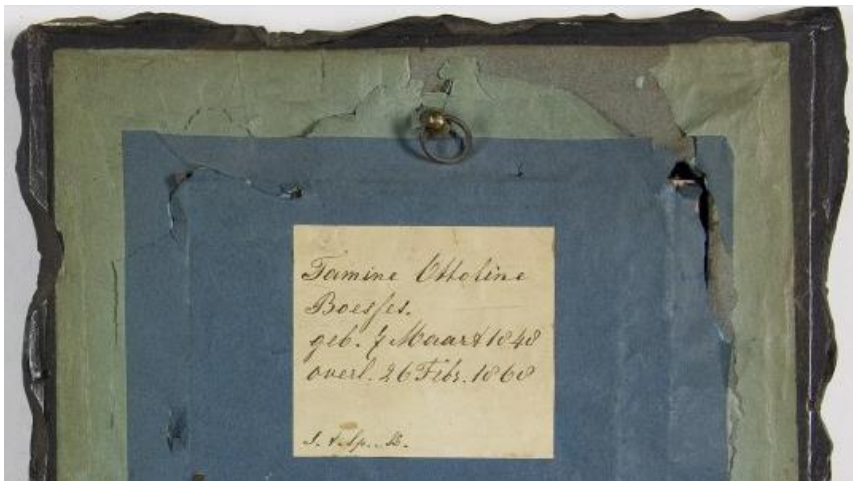 Tamine Ottoline
Boesses.
geb. 7 Maart 1848
overl. 26 Febr. 1868